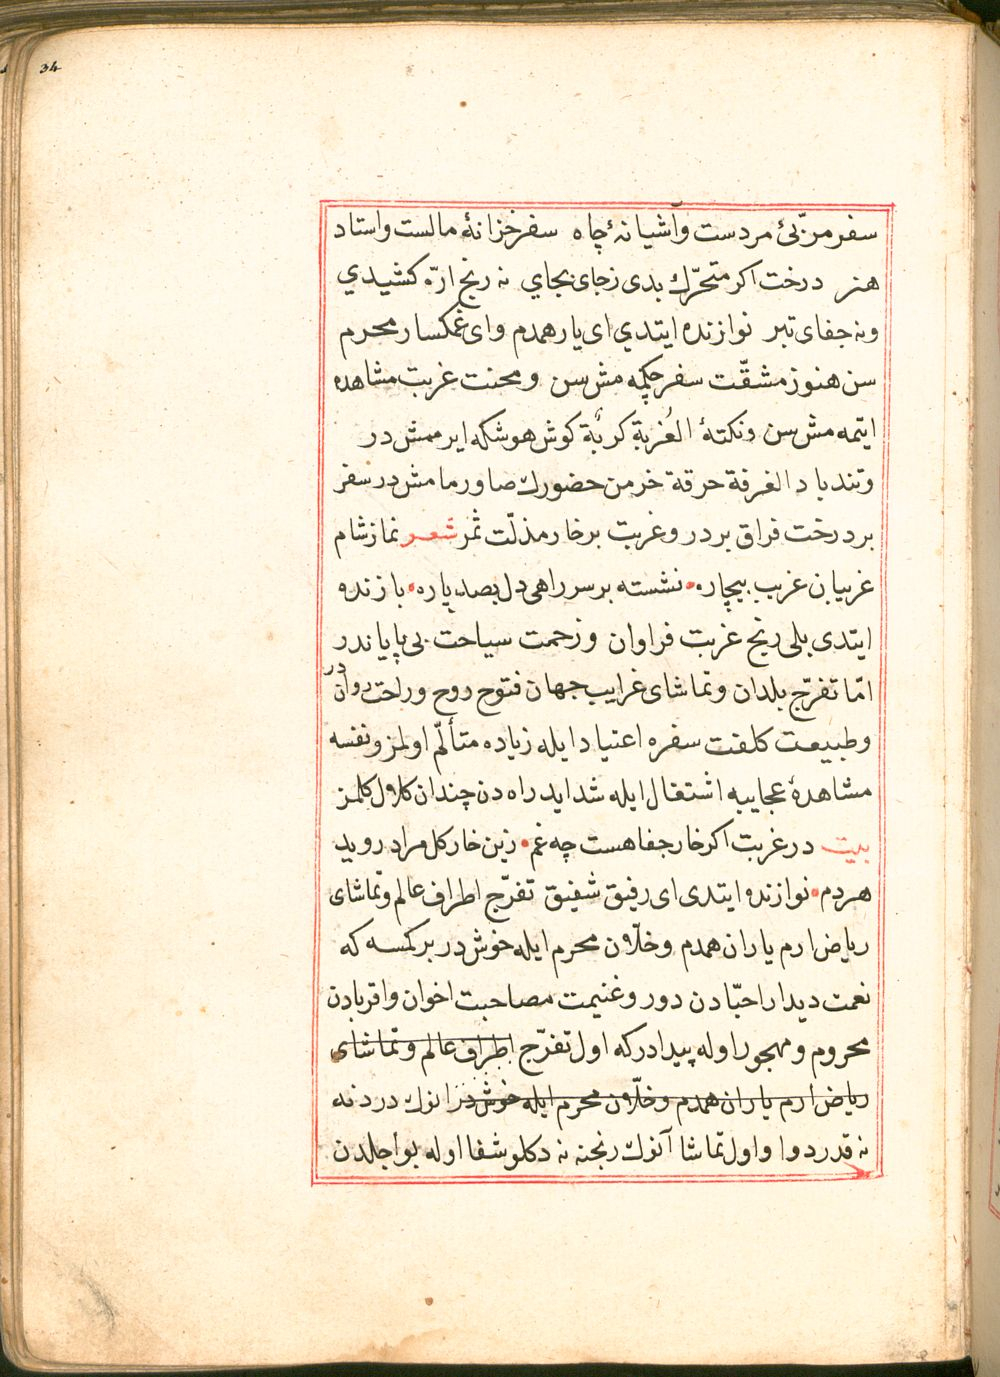 34
سفر مربّئ مردست وآشیانۀ جاه سفر خزانۀ مالست واستاد
هنر درخت اکر متحرّك بدی زجای بجای نه رنج ارّه کشیدي
ونه جفای تبر نوازنده ایتدي ای یار همدم وای غمکسار محرم
سن هنوز مشقّت سفر چکمه مش سن ومحنت غربت مشاهده
ایتمه مش سن ونکتۀ الغُربة کربةٌ کوش هوشکه ایرممش در
وتندباد الغرفة حرقة خرمن حضورك صاورمامش در سفر
بر درخت فراق بردر وغربت برخار مذلّت ثمر شعر نماز شام
غریبان غریب بیچاره • نشسته بر سر راهی دل بصد پاره • بازنده
ایتدی بلی رنج غربت فراوان وزحمت سیاحت بی پایاندر
امّا تفرّج بلدان وتماشای غرایب جهان فتوح روح وراحت رواندر
وطبیعت کلفت سفره اعتیاد ایله زیاده متألّم اولمز ونفسه
مشاهدۀ عجایبه اشتغال ایله شداید راه دن چندان کلال کلمز
بیت در غربت اکر خار جفا هست چه غم • زین خار کل مراد روید
هردم • نوازنده ایتدی ای رفیق شفیق تفرّج اطراف عالم وتماشای
ریاض ارم یاران همدم وخلّان محرم ایله خوش در بر کمسه که
نعمت دیدار احبّادن دور وغنیمت مصاحبت اخوان واقربادن
محروم ومهجور اوله پیدادرکه اول تفرّج اطراف عالم وتماشای
ریاض ارم یاران همدم وخلّان محرم ایله خوش در انوك دردنه
نه قدر دوا واول تماشا آنوك رنجنه نه دکلو شفا اوله بواجلدن